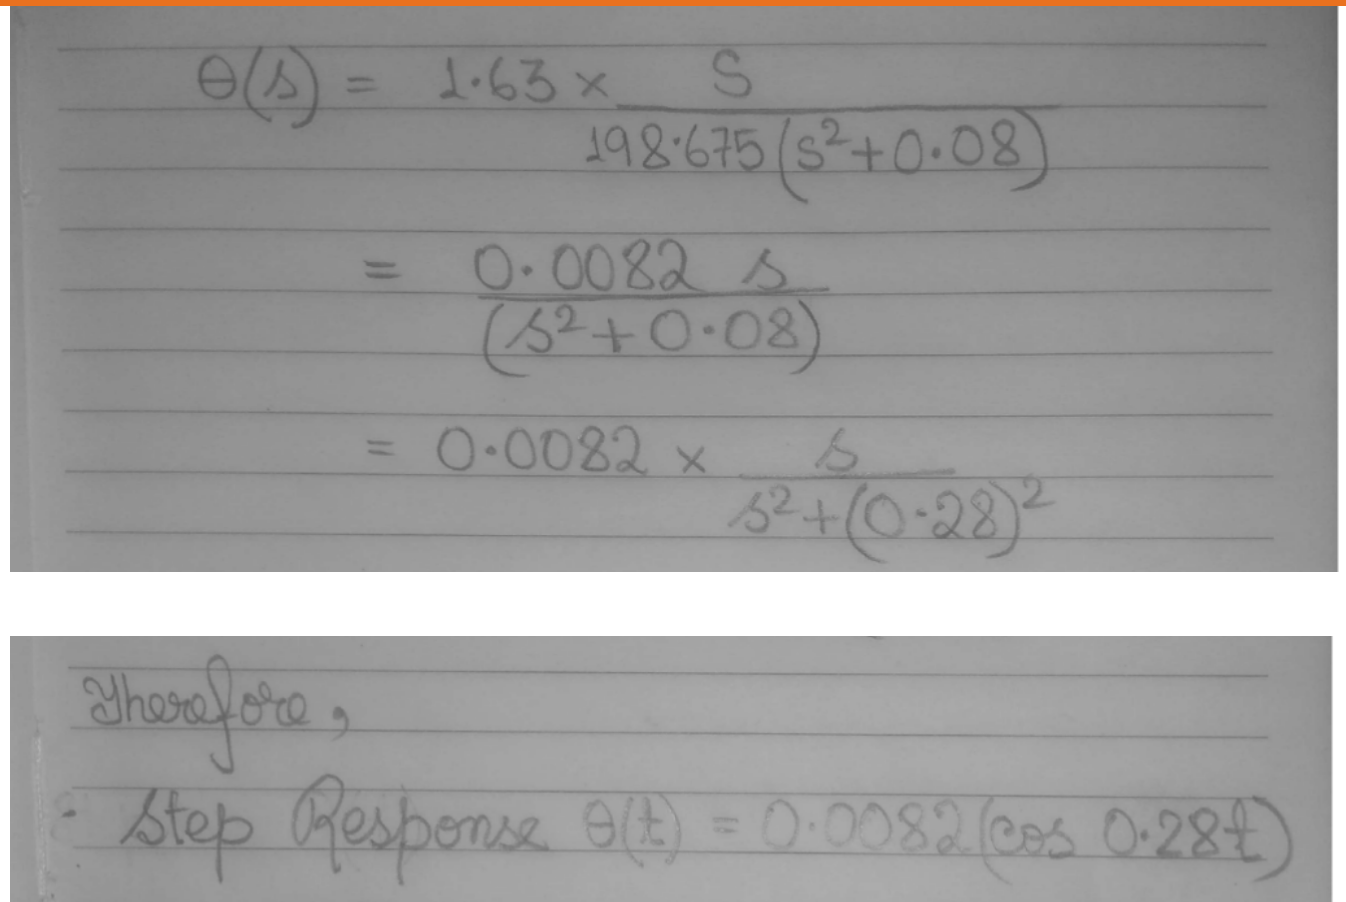 θ(s) = 1.63 × S / 198.675(s²+0.08)
= 0.0082 s / (s²+0.08)
= 0.0082 × s / s²+(0.28)²
Therefore,
Step Response θ(t) = 0.0082(cos 0.28t)